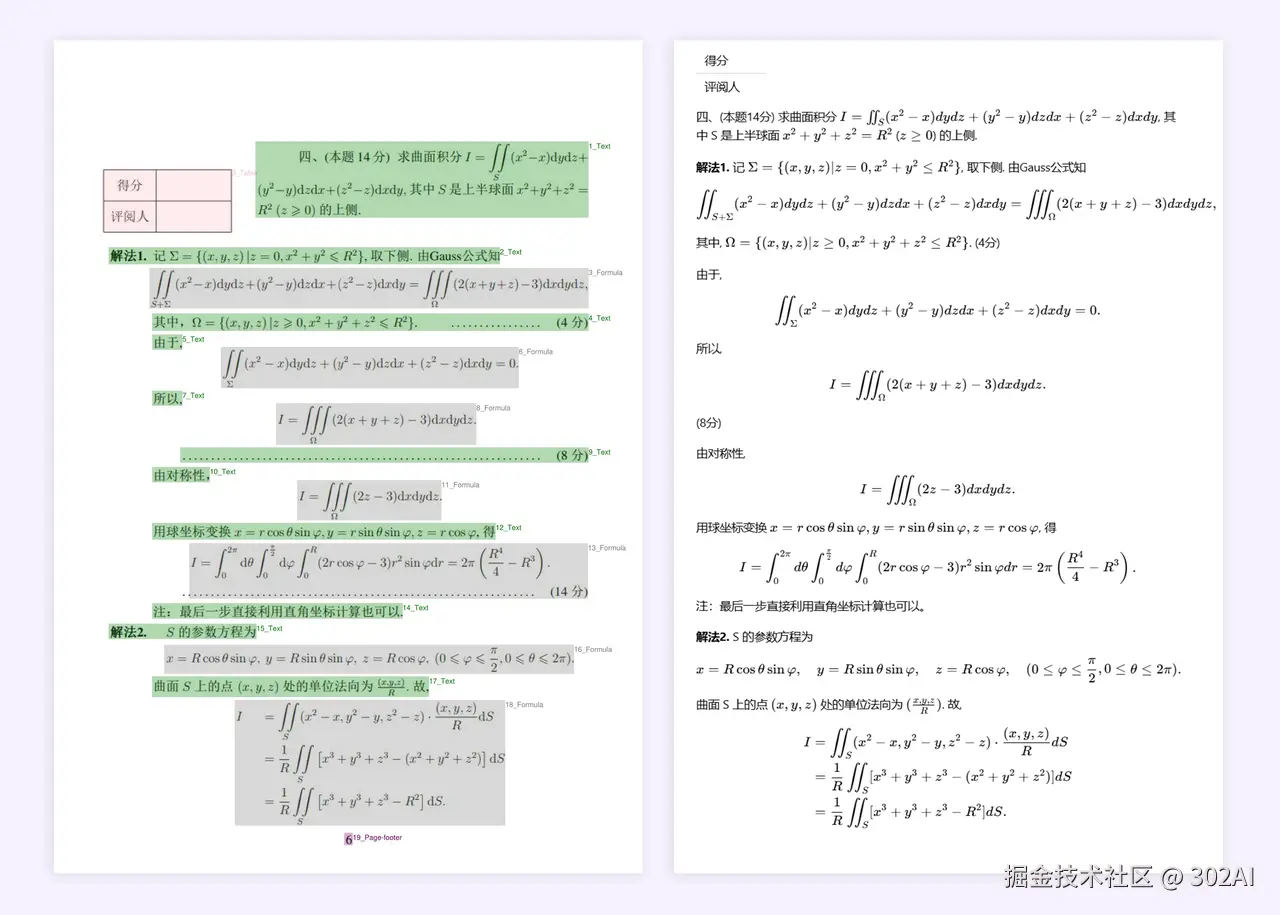 四、(本题 14 分) 求曲面积分 $I = \iint\limits_{S}(x^2-x)\mathrm{d}y\mathrm{d}z+$ 1_Text
得分
$(y^2-y)\mathrm{d}z\mathrm{d}x+(z^2-z)\mathrm{d}x\mathrm{d}y$, 其中 $S$ 是上半球面 $x^2+y^2+z^2=$
评阅人
$R^2$ $(z \geqslant 0)$ 的上侧.
解法1. 记 $\Sigma = \{(x,y,z)\,|z=0, x^2+y^2 \leqslant R^2\}$, 取下侧. 由Gauss公式知 2_Text
$\iint\limits_{S+\Sigma}(x^2-x)\mathrm{d}y\mathrm{d}z+(y^2-y)\mathrm{d}z\mathrm{d}x+(z^2-z)\mathrm{d}x\mathrm{d}y = \iiint\limits_{\Omega}(2(x+y+z)-3)\mathrm{d}x\mathrm{d}y\mathrm{d}z,$ 3_Formula
其中，$\Omega = \{(x,y,z)\,|z \geqslant 0, x^2+y^2+z^2 \leqslant R^2\}$. ................ (4 分) 4_Text
由于, 5_Text
$\iint\limits_{\Sigma}(x^2-x)\mathrm{d}y\mathrm{d}z+(y^2-y)\mathrm{d}z\mathrm{d}x+(z^2-z)\mathrm{d}x\mathrm{d}y = 0.$ 6_Formula
所以, 7_Text
$I = \iiint\limits_{\Omega}(2(x+y+z)-3)\mathrm{d}x\mathrm{d}y\mathrm{d}z.$ 8_Formula
................................................................ (8 分) 9_Text
由对称性, 10_Text
$I = \iiint\limits_{\Omega}(2z-3)\mathrm{d}x\mathrm{d}y\mathrm{d}z.$ 11_Formula
用球坐标变换 $x = r\cos\theta\sin\varphi, y = r\sin\theta\sin\varphi, z = r\cos\varphi$, 得 12_Text
$I = \int_0^{2\pi}\mathrm{d}\theta\int_0^{\frac{\pi}{2}}\mathrm{d}\varphi\int_0^R(2r\cos\varphi-3)r^2\sin\varphi\mathrm{d}r = 2\pi\left(\frac{R^4}{4}-R^3\right).$ 13_Formula
................................................................ (14 分)
注：最后一步直接利用直角坐标计算也可以. 14_Text
解法2. $S$ 的参数方程为 15_Text
$x = R\cos\theta\sin\varphi,\ y = R\sin\theta\sin\varphi,\ z = R\cos\varphi,\ (0 \leqslant \varphi \leqslant \frac{\pi}{2}, 0 \leqslant \theta \leqslant 2\pi).$ 16_Formula
曲面 $S$ 上的点 $(x,y,z)$ 处的单位法向为 $\frac{(x,y,z)}{R}$. 故, 17_Text
$I = \iint\limits_{S}(x^2-x, y^2-y, z^2-z)\cdot\frac{(x,y,z)}{R}\mathrm{d}S$ 18_Formula
$= \frac{1}{R}\iint\limits_{S}\left[x^3+y^3+z^3-(x^2+y^2+z^2)\right]\mathrm{d}S$
$= \frac{1}{R}\iint\limits_{S}\left[x^3+y^3+z^3-R^2\right]\mathrm{d}S.$
6 19_Page-footer
得分
评阅人
四、(本题14分) 求曲面积分 $I = \iint_S(x^2-x)dydz+(y^2-y)dzdx+(z^2-z)dxdy$, 其
中 S 是上半球面 $x^2+y^2+z^2=R^2$ $(z \geq 0)$ 的上侧.
解法1. 记 $\Sigma = \{(x,y,z)|z=0, x^2+y^2 \leq R^2\}$, 取下侧. 由Gauss公式知
$\iint_{S+\Sigma}(x^2-x)dydz+(y^2-y)dzdx+(z^2-z)dxdy = \iiint_{\Omega}(2(x+y+z)-3)dxdydz,$
其中, $\Omega = \{(x,y,z)|z \geq 0, x^2+y^2+z^2 \leq R^2\}$. (4分)
由于,
$\iint_{\Sigma}(x^2-x)dydz+(y^2-y)dzdx+(z^2-z)dxdy = 0.$
所以,
$I = \iiint_{\Omega}(2(x+y+z)-3)dxdydz.$
(8分)
由对称性,
$I = \iiint_{\Omega}(2z-3)dxdydz.$
用球坐标变换 $x = r\cos\theta\sin\varphi, y = r\sin\theta\sin\varphi, z = r\cos\varphi$, 得
$I = \int_0^{2\pi}d\theta\int_0^{\frac{\pi}{2}}d\varphi\int_0^R(2r\cos\varphi-3)r^2\sin\varphi dr = 2\pi\left(\frac{R^4}{4}-R^3\right).$
注：最后一步直接利用直角坐标计算也可以。
解法2. S 的参数方程为
$x = R\cos\theta\sin\varphi,\quad y = R\sin\theta\sin\varphi,\quad z = R\cos\varphi,\quad (0 \leq \varphi \leq \frac{\pi}{2}, 0 \leq \theta \leq 2\pi).$
曲面 S 上的点 $(x,y,z)$ 处的单位法向为 $(\frac{x,y,z}{R})$. 故,
$I = \iint_S(x^2-x, y^2-y, z^2-z)\cdot\frac{(x,y,z)}{R}dS$
$= \frac{1}{R}\iint_S[x^3+y^3+z^3-(x^2+y^2+z^2)]dS$
$= \frac{1}{R}\iint_S[x^3+y^3+z^3-R^2]dS.$
掘金技术社区 @ 302AI